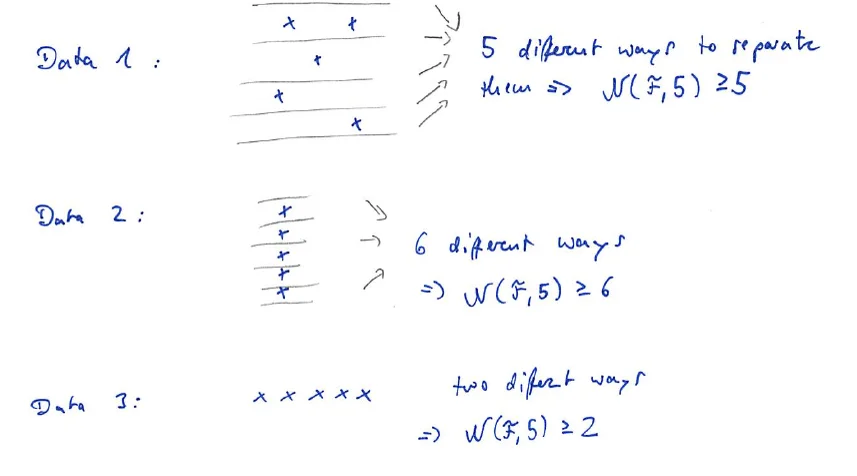 Data 1:
5 different ways to separate
them => N(F, 5) ≥ 5
Data 2:
6 different ways
=> N(F, 5) ≥ 6
Data 3:
two difert ways
=> N(F, 5) ≥ 2